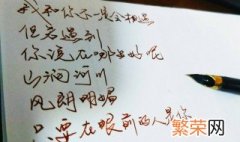 我和你不一定会相遇
但若遇到
你说在哪些好呢
山涧河川
风朗明媚
只要在眼前的人是你
繁荣网